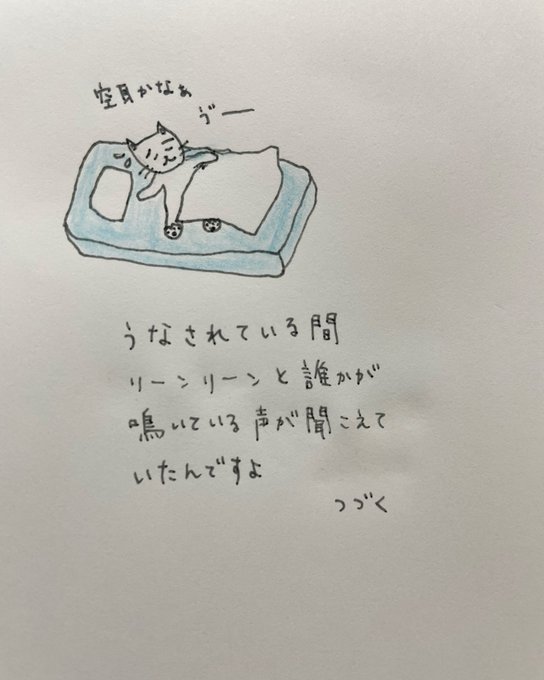 空耳かなぁ
ゔー
うなされている間
リーンリーンと誰かが
鳴いている声が聞こえて
いたんですよ
つづく